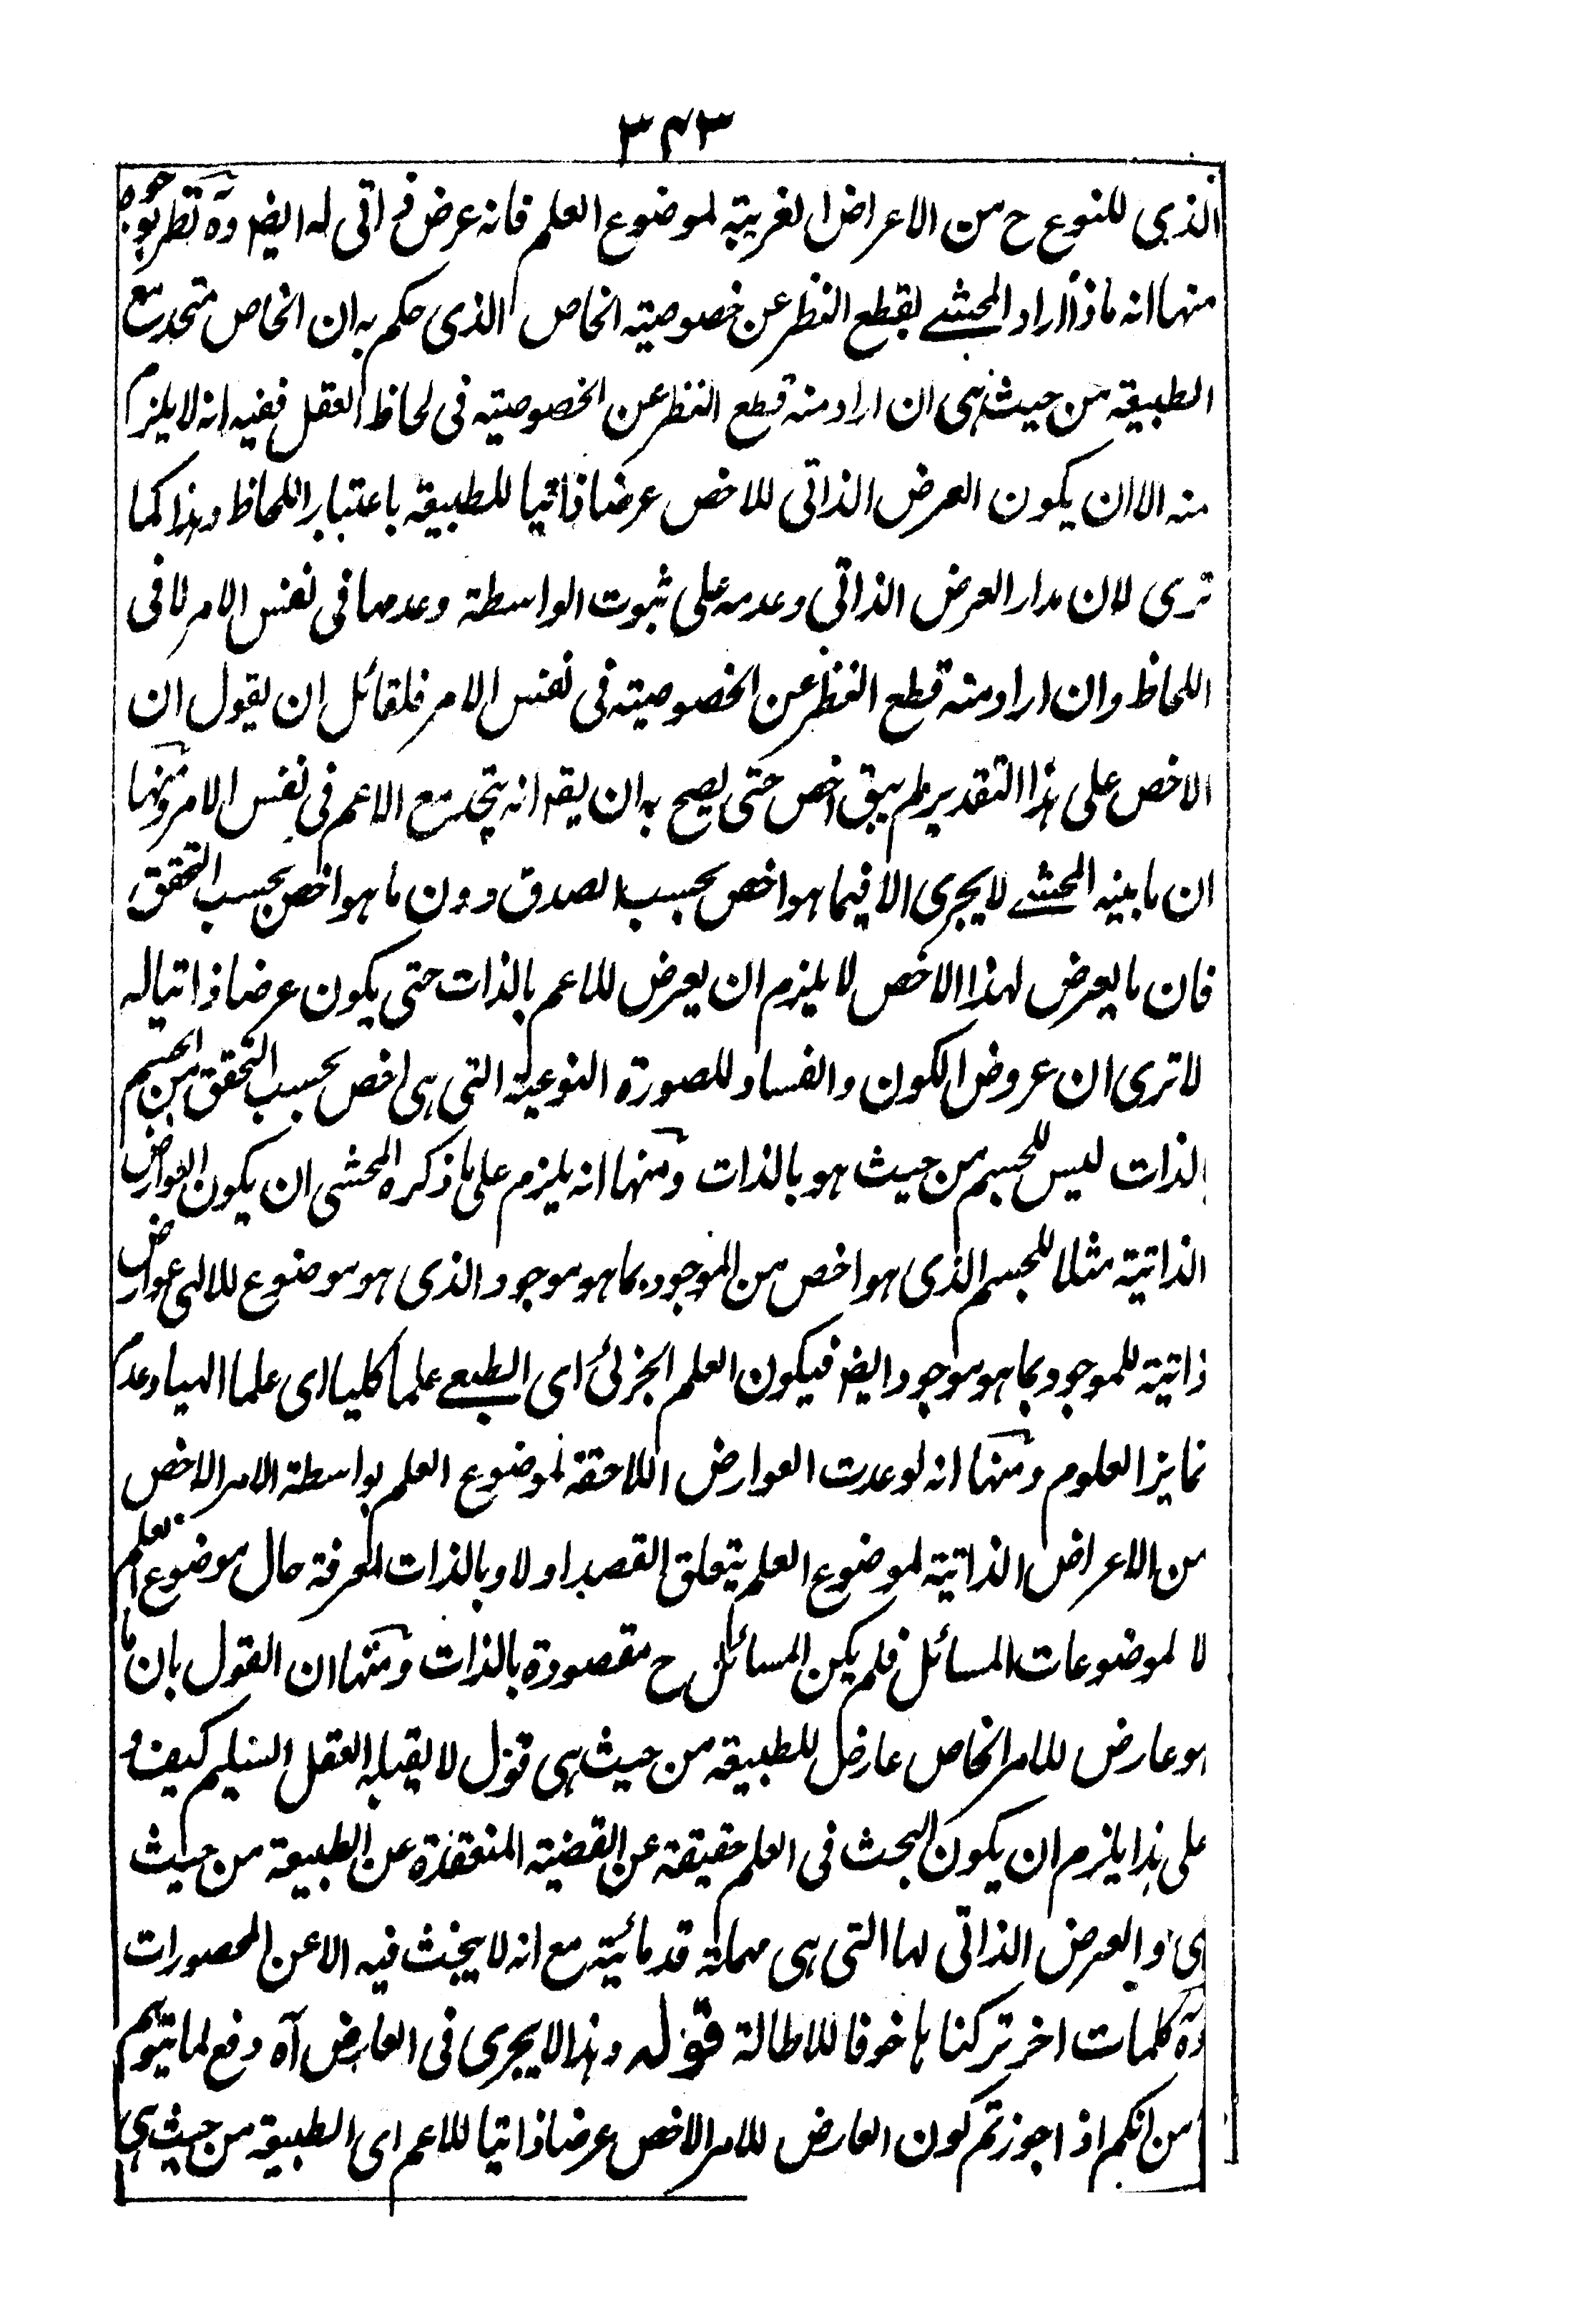 ٣٤٣
الذي للنوع ح من الاعراض الغريبة لموضوع العلم فانه عرض ذاتي له ايضا وه نظر بوجوه
منها انه ماذا اراد المحشے بقطع النظر عن خصوصية الخاص الذى حكم به ان الخاص متحد مع
الطبيعة من حيث هى ان اراد منه قطع النظر عن الخصوصية فى لحاظ العقل ففيه انه لا يلزم
منه الا ان يكون العرض الذاتى للاخص عرضا ذاتيا للطبيعة باعتبار اللحاظ وهذا كما
ترى لان مدار العرض الذاتى وعدمه على ثبوت الواسطة وعدمها فى نفس الامر لا فى
اللحاظ وان اراد منه قطع النظر عن الخصوصية فى نفس الامر فلقائل ان يقول ان
الاخص على هذا التقدير لم يبق اخص حتى يصح به ان يقر انه يتحد مع الاعم فى نفس الامر ومنها
ان ما بينه المحشے لا يجرى الا فيما هو اخص بحسب الصدق دون ما هو اخص بحسب التحقق
فان ما يعرض لهذا الاخص لا يلزم ان يعرض للاعم بالذات حتى يكون عرضا ذاتيا له
لا ترى ان عروض الكون والفساد للصورة النوعية التى هى اخص بحسب التحقق من الجسم
بالذات ليس للجسم من حيث هو بالذات ومنها انه يلزم على ما ذكره المحشى ان يكون العوارض
الذاتية مثلا للجسم الذى هو اخص من الموجود بما هو موجود الذى هو موضوع للالهى عوارض
ذاتية للموجود بما هو موجود ايضا فيكون العلم الجزئى اى الطبعے علما كليا اى علما الهيا وعدم
تمايز العلوم ومنها انه لو عدت العوارض اللاحقة لموضوع العلم بواسطة الامر الاخص
من الاعراض الذاتية لموضوع العلم يتعلق القصد اولا وبالذات لمعرفة حال موضوع العلم
لا لموضوعات المسائل فلم يكن المسائل ح مقصودة بالذات ومنها ان القول بان ما
هو عارض للامر الخاص عارض للطبيعة من حيث هى قول لا يقبله العقل السليم كيف و
على هذا يلزم ان يكون البحث فى العلم حقيقة عن القضية المنعقدة عن الطبيعة من حيث
هى والعرض الذاتى لها التى هى مهملة قدمائية مع انه لا يبحث فيه الا عن المحصورات
وه كلمات اخر تركناها خوفا للاطالة قوله وهذا لا يجرى فى العارض آه دفع لما يتوهم
من انكم اذا جوزتم كون العارض للامر الاخص عرضا ذاتيا للاعم اى الطبيعة من حيث هى